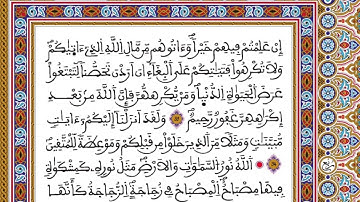 إِنْ عَلِمْتُمْ فِيهِمْ خَيْرًا وَءَاتُوهُم مِّن مَّالِ اللَّهِ الَّذِي ءَاتَيٰكُمْ
وَلَا تُكْرِهُوا فَتَيَٰتِكُمْ عَلَى الْبِغَآءِ انْ اَرَدْنَ تَحَصُّنًا لِّتَبْتَغُوا
عَرَضَ الْحَيَوٰةِ الدُّنْيَا وَمَنْ يُّكْرِههُّنَّ فَإِنَّ اللَّهَ مِنۢ بَعْدِ
إِكْرَٰهِهِنَّ غَفُورٌ رَّحِيمٌ وَلَقَدَ اَنزَلْنَآ إِلَيْكُمُۥٓ ءَايَٰتٍ
مُّبَيَّنَٰتٍ وَمَثَلًا مِّنَ الَّذِينَ خَلَوْا مِن قَبْلِكُمْ وَمَوْعِظَةً لِّلْمُتَّقِينَ
اَللَّهُ نُورُ السَّمَٰوَٰتِ وَالَارْضِ مَثَلُ نُورِهِۦ كَمِشْكَوٰةٍ
فِيهَا مِصْبَاحٌ اَلْمِصْبَاحُ فِي زُجَاجَةٍ اَلزُّجَاجَةُ كَأَنَّهَا